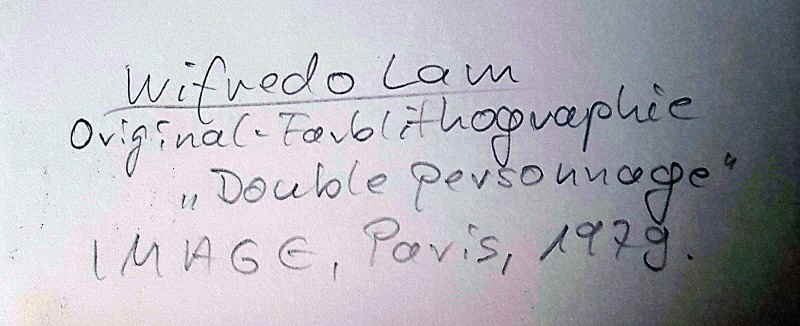 Wifredo Lam
Original-Farblithographie
„Double personnage"
IMAGE, Paris, 1979.